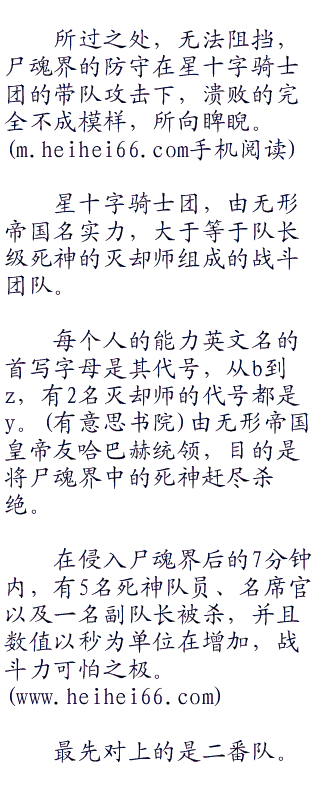 所过之处，无法阻挡，
尸魂界的防守在星十字骑士
团的带队攻击下，溃败的完
全不成模样，所向睥睨。
(m.heihei66.com手机阅读)
星十字骑士团，由无形
帝国名实力，大于等于队长
级死神的灭却师组成的战斗
团队。
每个人的能力英文名的
首写字母是其代号，从b到
z，有2名灭却师的代号都是
y。(有意思书院)由无形帝国
皇帝友哈巴赫统领，目的是
将尸魂界中的死神赶尽杀
绝。
在侵入尸魂界后的7分钟
内，有5名死神队员、名席官
以及一名副队长被杀，并且
数值以秒为单位在增加，战
斗力可怕之极。
(www.heihei66.com)
最先对上的是二番队。